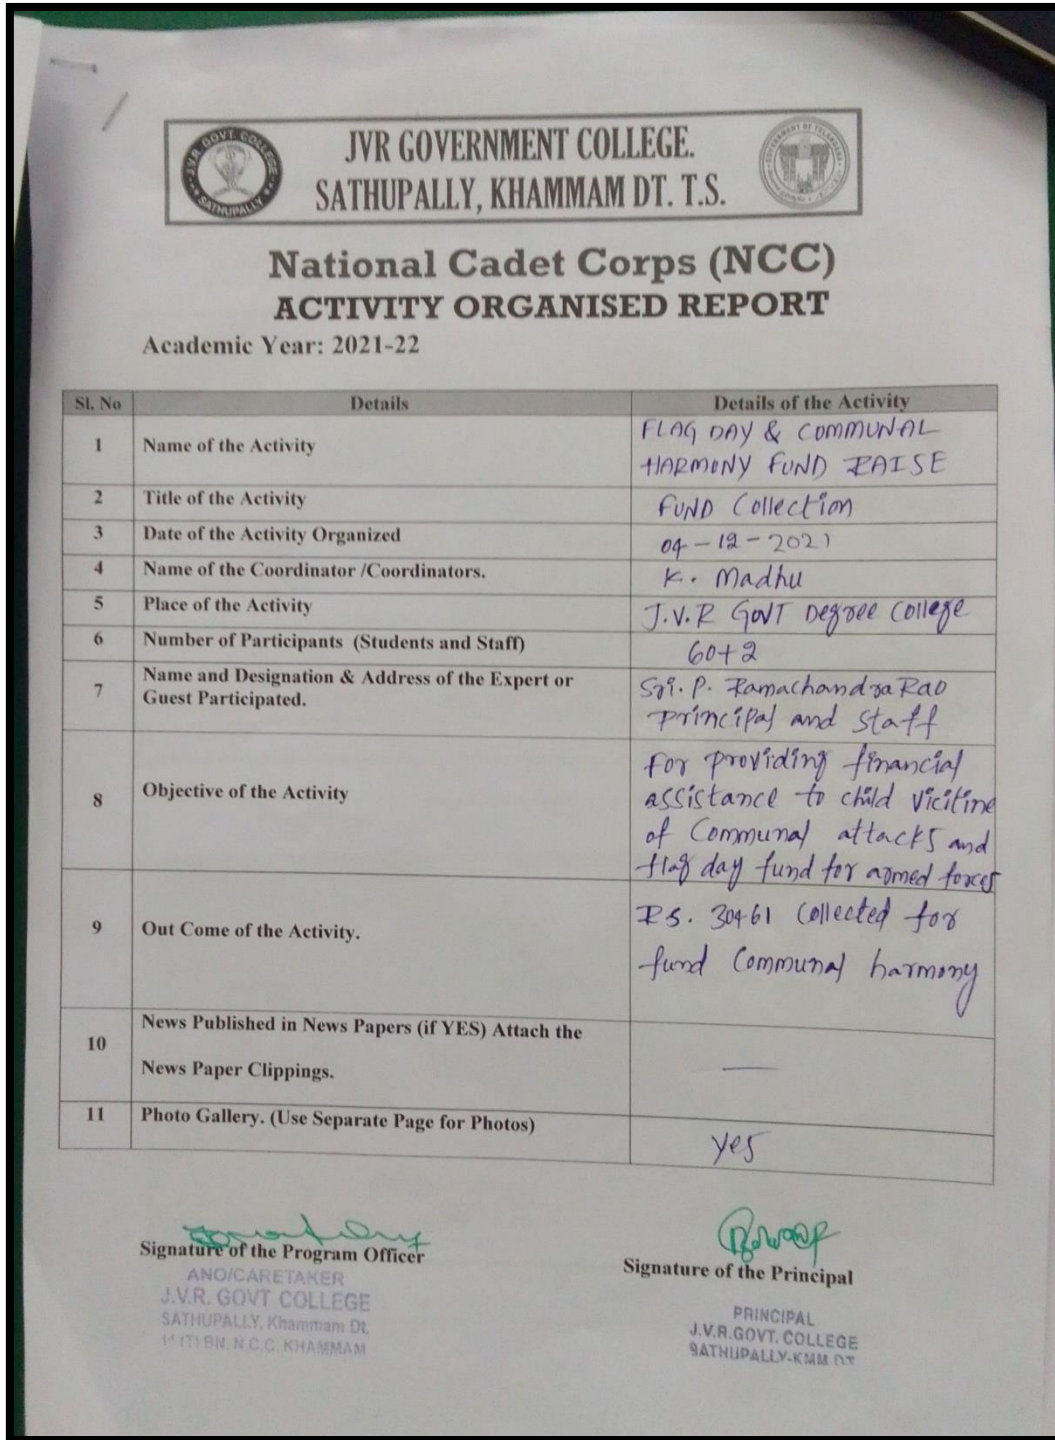 J.V.R. GOVT. COLLEGE
SATHUPALLY
JVR GOVERNMENT COLLEGE.
SATHUPALLY, KHAMMAM DT. T.S.
GOVERNMENT OF TELANGANA
National Cadet Corps (NCC)
ACTIVITY ORGANISED REPORT
Academic Year: 2021-22
Sl. No Details Details of the Activity
1 Name of the Activity FLAG DAY & COMMUNAL
HARMONY FUND RAISE
2 Title of the Activity FUND Collection
3 Date of the Activity Organized 04-12-2021
4 Name of the Coordinator /Coordinators. K. Madhu
5 Place of the Activity J.V.R GOVT Degree College
6 Number of Participants (Students and Staff) 60+2
7 Name and Designation & Address of the Expert or
Guest Participated.
Sri. P. Ramachandra Rao
Principal and Staff
8 Objective of the Activity
For providing financial
assistance to child vicitine
of Communal attacks and
flag day fund for armed forces
9 Out Come of the Activity.
RS. 30461 Collected for
fund Communal harmony
10 News Published in News Papers (if YES) Attach the
News Paper Clippings. —
11 Photo Gallery. (Use Separate Page for Photos) Yes
Signature of the Program Officer
ANO/CARETAKER
J.V.R. GOVT COLLEGE
SATHUPALLY, Khammam Dt.
BN. N.C.C. KHAMMAM
Signature of the Principal
PRINCIPAL
J.V.R.GOVT. COLLEGE
SATHUPALLY-KMM DT